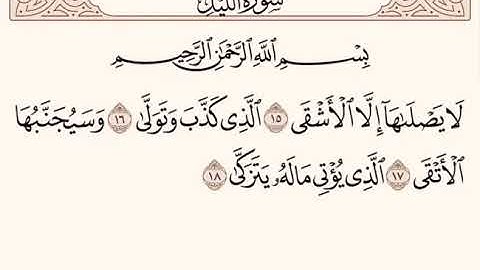 سُورَةُ اللَّيْلِ
بِسْمِ اللَّهِ الرَّحْمَٰنِ الرَّحِيمِ
لَا يَصْلَىٰهَآ إِلَّا ٱلْأَشْقَى ١٥ ٱلَّذِى كَذَّبَ وَتَوَلَّىٰ ١٦ وَسَيُجَنَّبُهَا
ٱلْأَتْقَى ١٧ ٱلَّذِى يُؤْتِى مَالَهُۥ يَتَزَكَّىٰ ١٨